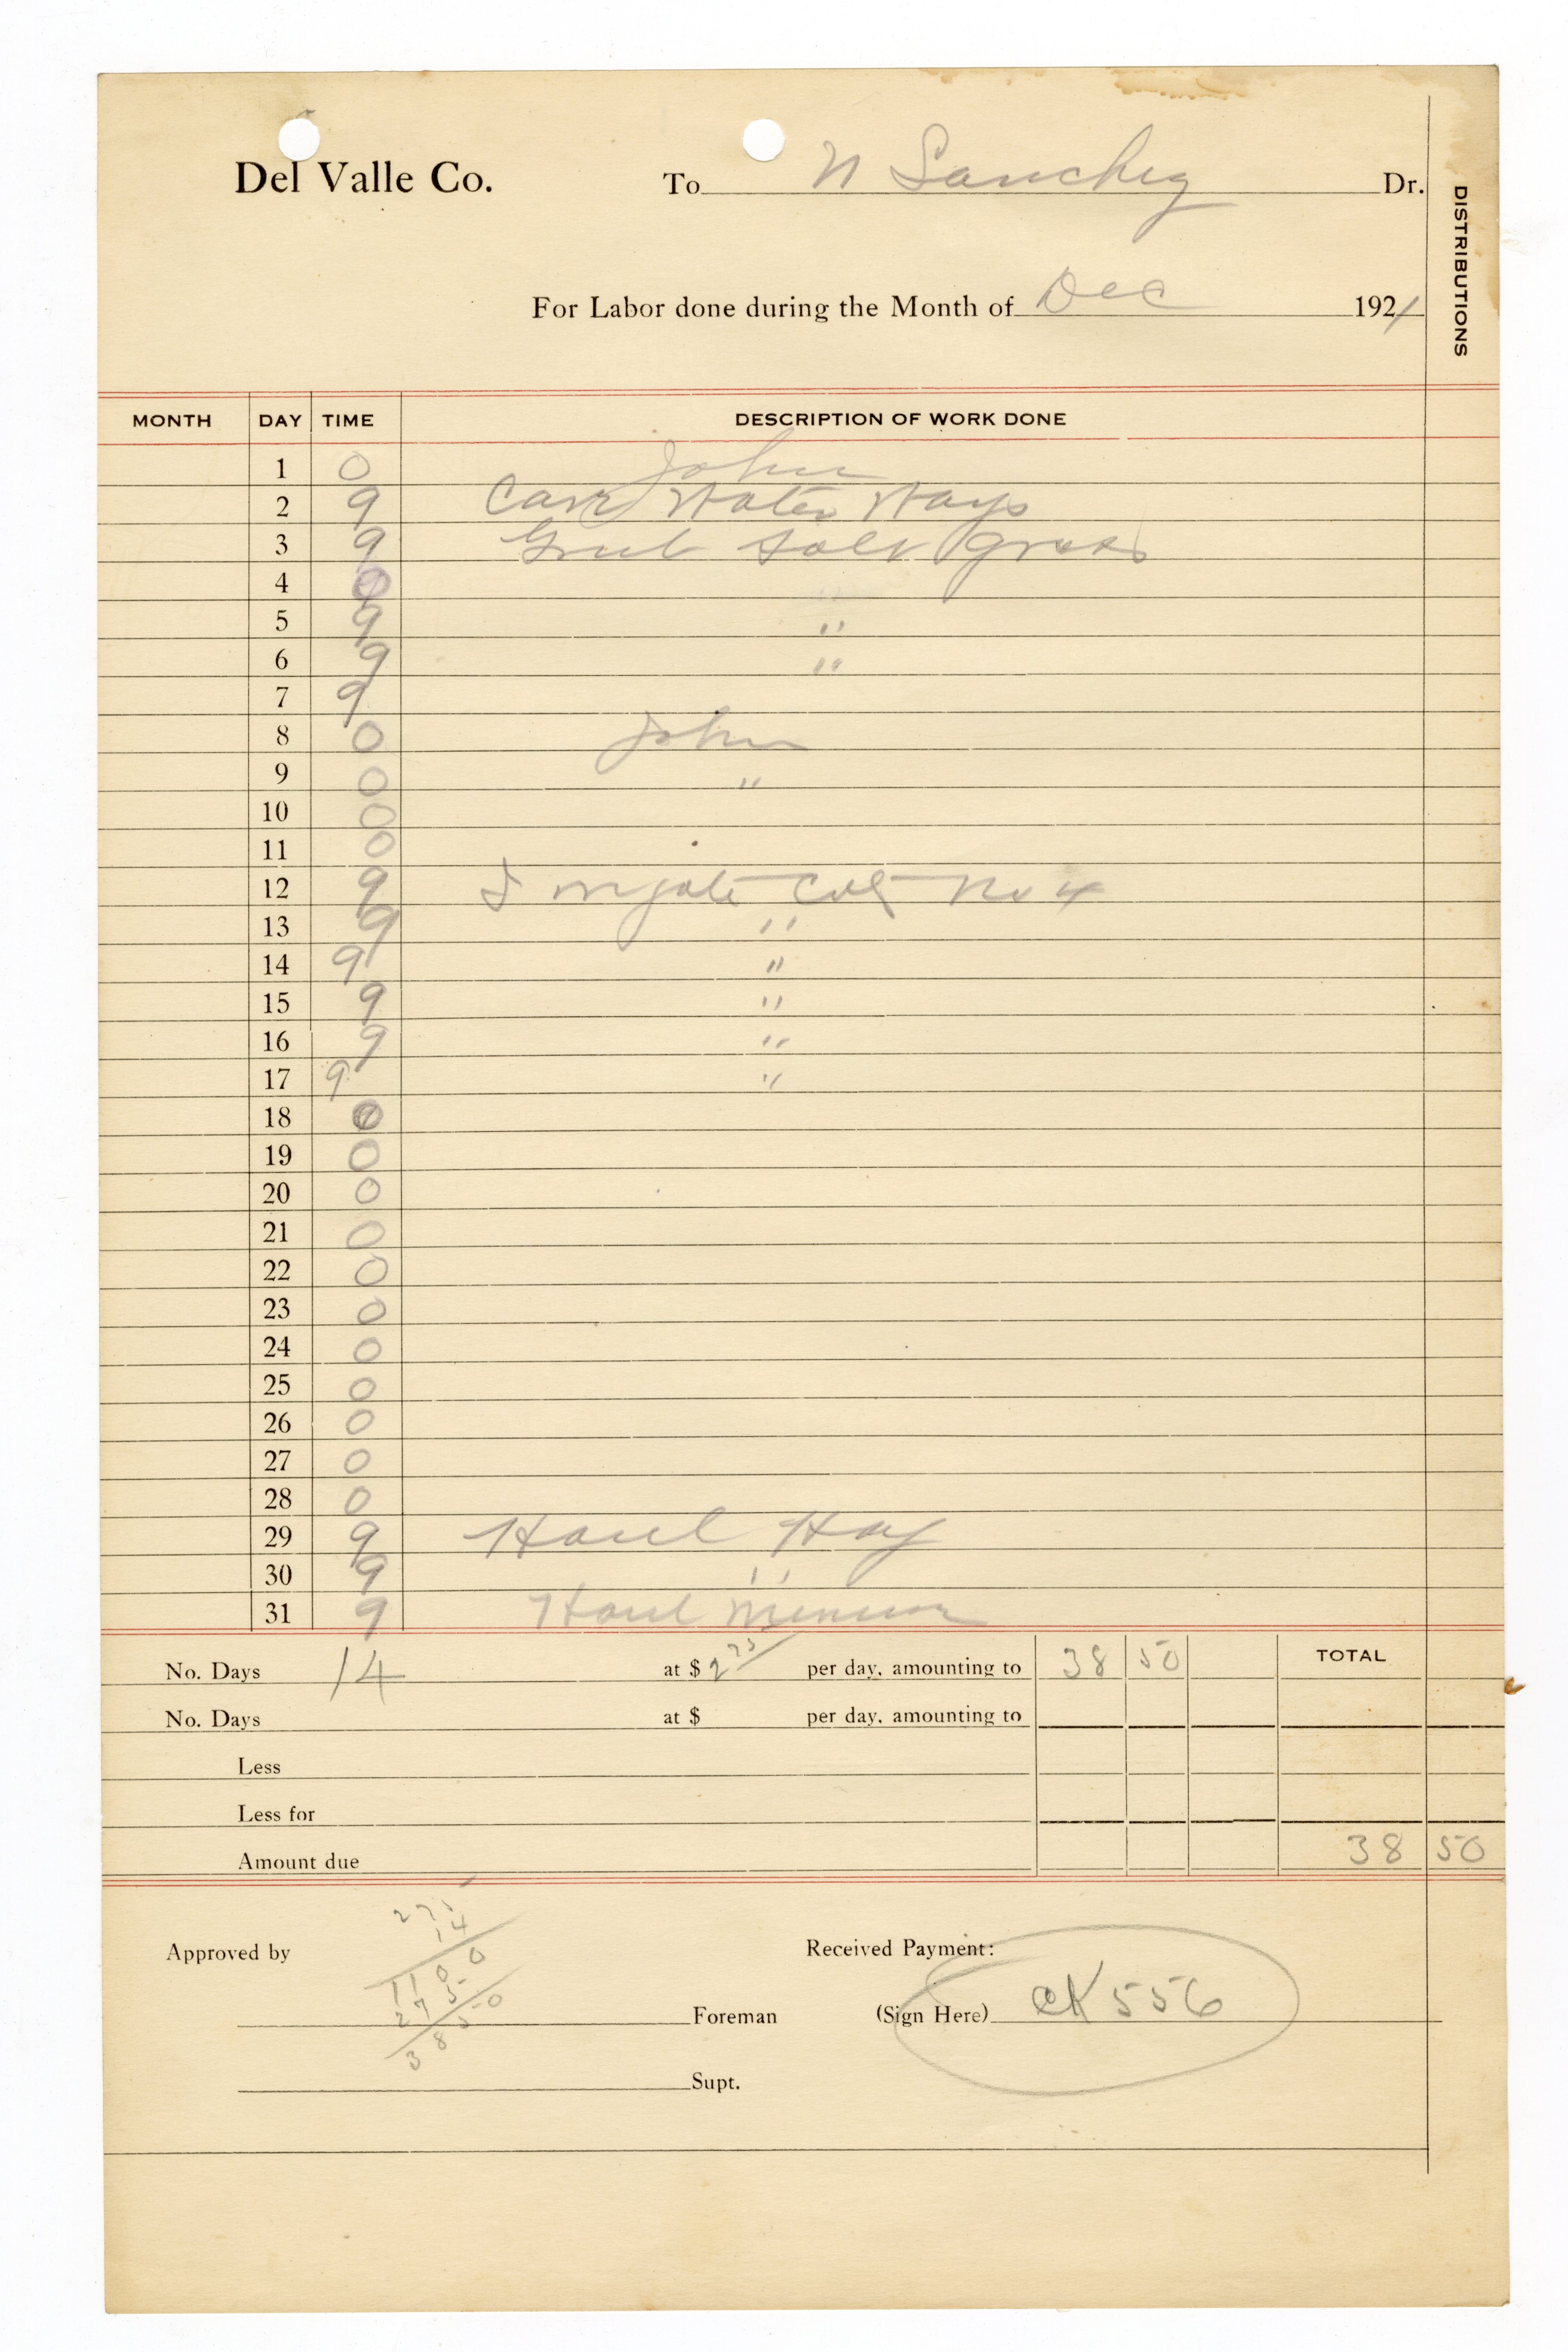 Del Valle Co. To N Sanchez Dr.
DISTRIBUTIONS
For Labor done during the Month of Dec 1921
MONTH DAY TIME DESCRIPTION OF WORK DONE
1 0 John
2 9 Water Ways
3 9 Grub Salt grass
4 0
5 9 "
6 9 "
7 9
8 0 John
9 0 "
10 0
11 0
12 9 Irrigate No 4
13 9 "
14 9 "
15 9 "
16 9 "
17 9 "
18 0
19 0
20 0
21 0
22 0
23 0
24 0
25 0
26 0
27 0
28 0
29 9 Haul Hay
30 9 "
31 9 Haul
No. Days 14 at $ 2 75 per day, amounting to 38 50 TOTAL
No. Days at $ per day, amounting to
Less
Less for
Amount due 38 50
275
14
1100
275
3850
Approved by Received Payment:
Foreman (Sign Here) CK 556
Supt.